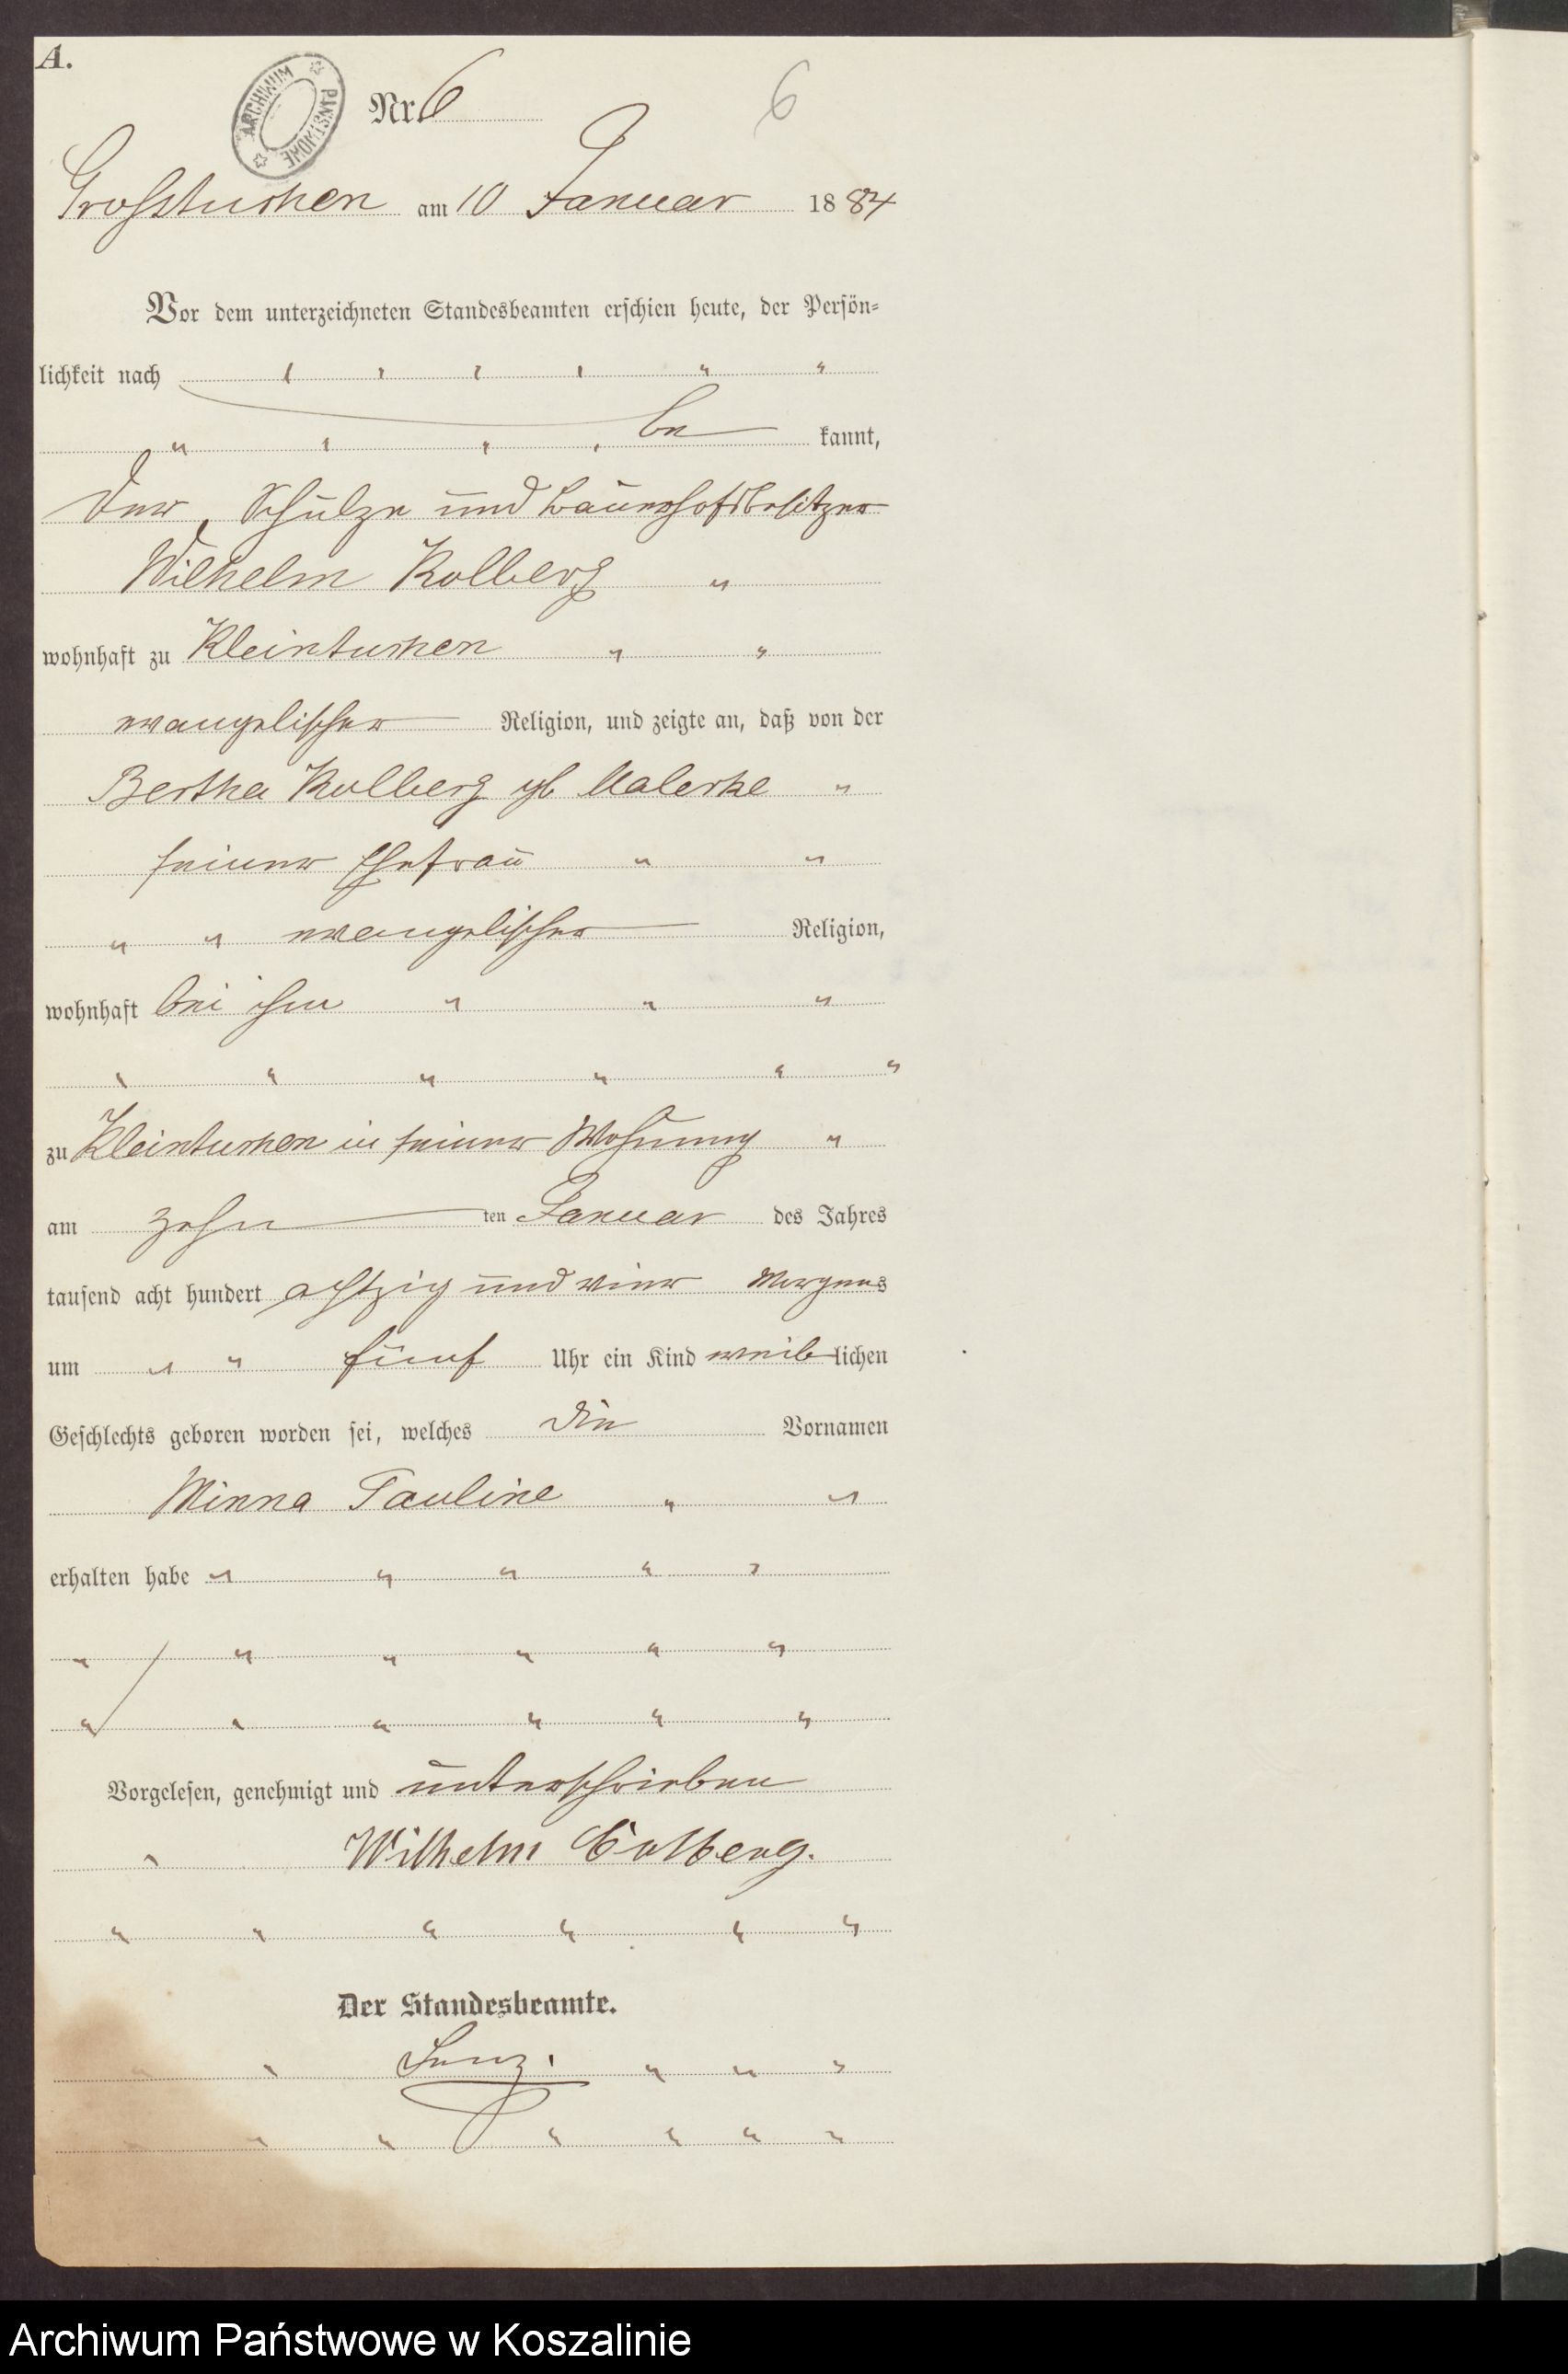 A.
ARCHIWUM PAŃSTWOWE
Nr. 6
6
Grosstuchen am 10 Januar 1884
Vor dem unterzeichneten Standesbeamten erschien heute, der Persön=
lichkeit nach " " " " " "
" " " " be kannt,
der Schulze und Bauerhofsbesitzer
Wilhelm Kolberg "
wohnhaft zu Kleintuchen " "
evangelischer Religion, und zeigte an, daß von der
Bertha Kolberg gb "
seiner Ehefrau " "
" " evangelischer Religion,
wohnhaft bei ihm " " "
" " " " " "
zu Kleintuchen in seiner Wohnung "
am zehn ten Januar des Jahres
tausend acht hundert achtzig und vier Morgens
um " " fünf Uhr ein Kind weiblichen
Geschlechts geboren worden sei, welches die Vornamen
Minna Pauline " "
erhalten habe " " " " "
" " " " " "
" " " " " "
Vorgelesen, genehmigt und unterschrieben
" Wilhelm Colberg.
" " " " " "
Der Standesbeamte.
" " Lenz. " " "
" " " " " " "
Archiwum Państwowe w Koszalinie